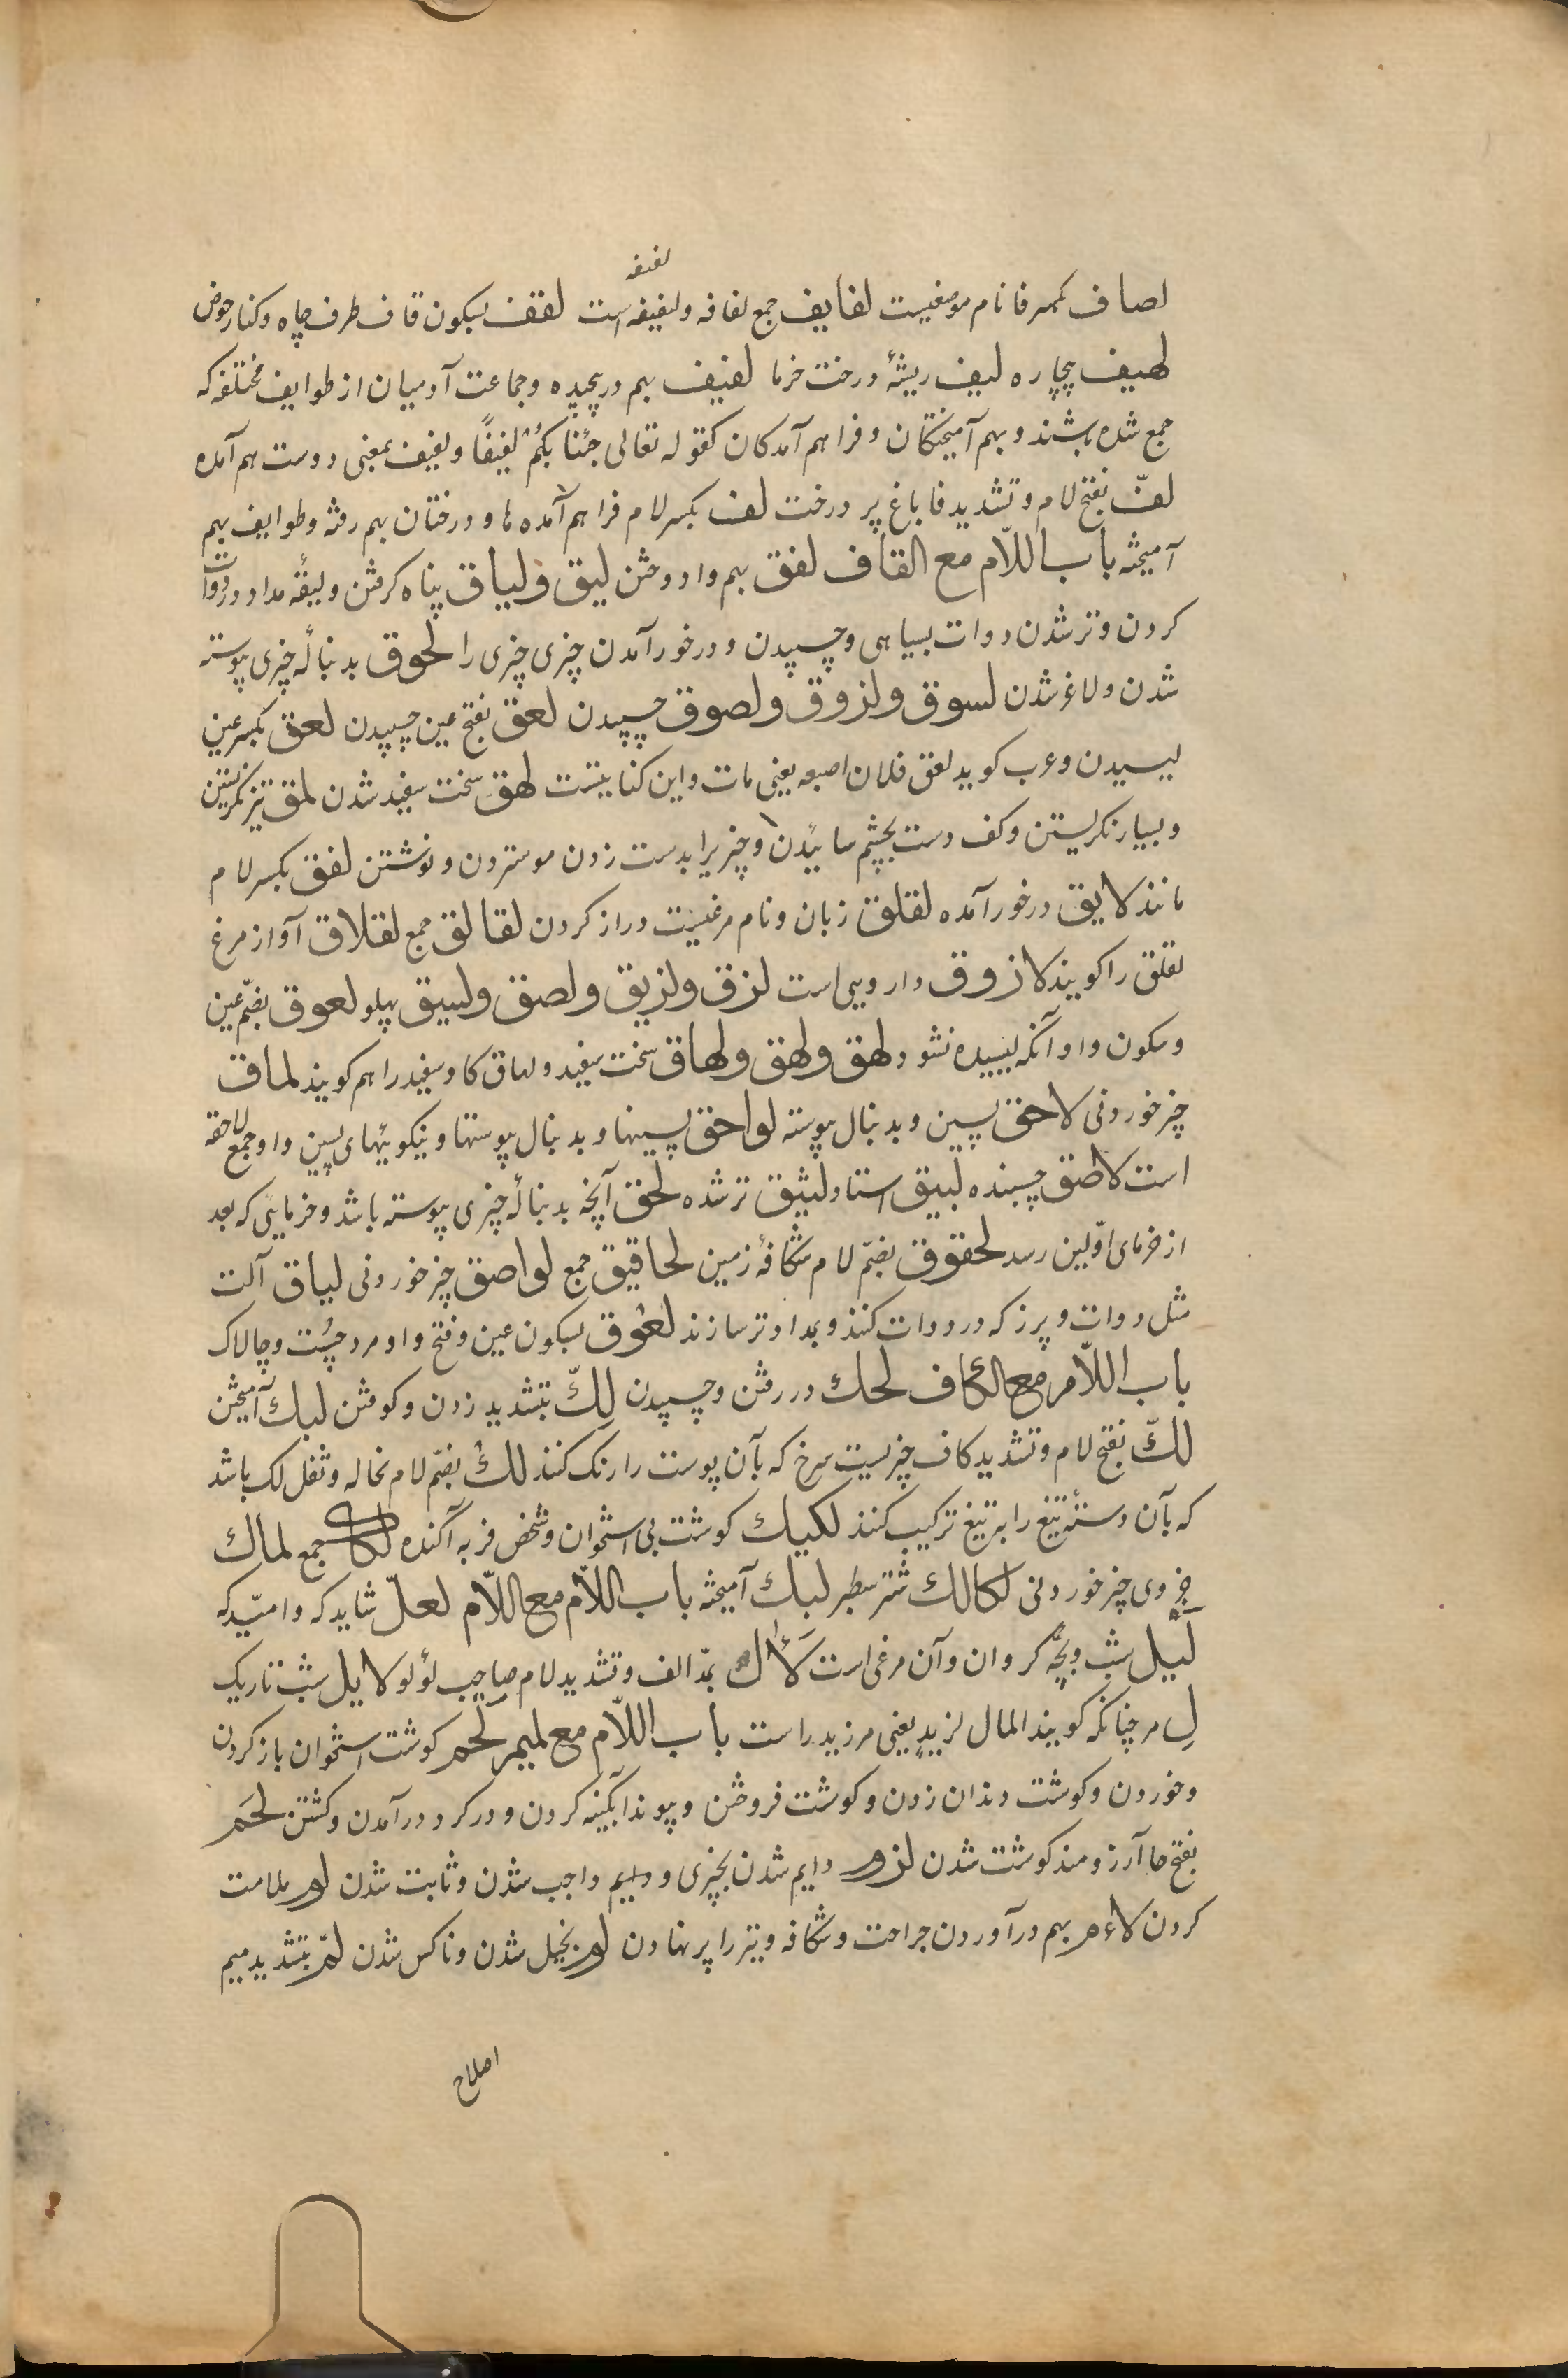 لفیفه
لصاف بکسر فا نام موضعیست لفایف جمع لفافه و لفیفه است لقف بسکون قاف طرف چاه و کنار حوض
لهیف بیچاره لیف ریشهٔ درخت خرما لفیف بهم درپیچیده و جماعت آدمیان از طوایف مختلفه که
جمع شده باشند و بهم آمیختکان و فراهم آمدکان کقوله تعالی جئنا بکم لفیفًا و لفیف بمعنی دوست هم آمده
لفّ بفتح لام و تشدید فا باغ پر درخت لف بکسر لام فراهم آمده ها و درختان بهم رفته و طوایف بهم
آمیخته باب اللّام مع القاف لفق بهم وا دوختن لیق و لیاق پناه کرفتن و لیقه مداد در دوات
کردن و تر شدن دوات بسیاهی و چسپیدن و در خور آمدن چیزی چیزی را لحوق بدنبالهٔ چیزی پیوسته
شدن و لاغر شدن لسوق و لزوق و لصوق چسپیدن لعق بفتح عین چسپیدن لعق بکسر عین
لیسیدن و عرب کوید لعق فلان اصبعه یعنی مات و این کنایتست لهق سخت سفید شدن لمق تیز نکریستن
و بسیار نکریستن و کف دست بچشم سائیدن و چیزیرا بدست زدن موستردن و نوشتن لفق بکسر لام
مانند لایق درخور آمده لقلق زبان و نام مرغیست و دراز کردن لقالق جمع لقلاق آواز مرغ
لقلق را کویند لازوق دارویی است لزق و لزیق و لصق و لسیق پهلو لعوق بضمّ عین
و سکون واو آنکه لیسیده نشود لهق و لهق و لهاق سخت سفید و لهاق کاو سفید را هم کویند لماق
چیز خوردنی لاحق پسین و بدنبال پیوسته لواحق پسینها و بدنبال پیوستها و نیکوییهای پسین و او جمع لاحقه
است لاصق چسبنده لبیق استاد لثیق تر شده لحق آنچه بدنبالهٔ چیزی پیوسته باشد و خرمایی که بعد
از خرمای اوّلین رسد لحقوق بضمّ لام شکافهٔ زمین لحاقیق جمع لواصق چیز خوردنی لیاق آلت
مثل دوات و پرز که در دوات کنند و بمداد تر سازند لعوق بسکون عین و فتح واو مرد چُست و چالاک
باب اللّام مع الکاف لحك در رفتن و چسپیدن لكّ بتشدید زدن و کوفتن لبك آمیختن
لكّ بفتح لام و تشدید کاف چیزیست سرخ که بآن پوست را رنک کنند لكّ بضمّ لام نخاله و ثفل لک باشد
که بآن دستهٔ تیغ را به تیغ ترکیب کنند لکیك کوشت بی استخوان و شخص فربه آکنده لکاك جمع لماك
جزوی چیز خوردنی لکالك شتر سطبر لبیك آمیخته باب اللّام مع اللّام لعلّ شاید که و امیّد که
لَیل شب و بچّه کروان و آن مرغی است لأال بمدّ الف و تشدید لام صاحب لؤلؤ لایل شب تاریک
لِ مر چنانکه کویند المال لزیدٍ یعنی مر زید راست باب اللّام مع المیم لَحم کوشت استخوان باز کردن
و خوردن و کوشت دندان زدن و کوشت فروختن و پیوند آبکینه کردن و در کرد درآمدن و کشتن لحَم
بفتح حا آرزومند کوشت شدن لزوم دایم شدن بچیزی و دایم واجب شدن و ثابت شدن لوم ملامت
کردن لاءم بهم درآوردن جراحت و شکافه و تیر را پر نهادن لوم بخیل شدن و ناکس شدن لمّ بتشدید میم
اصلاح